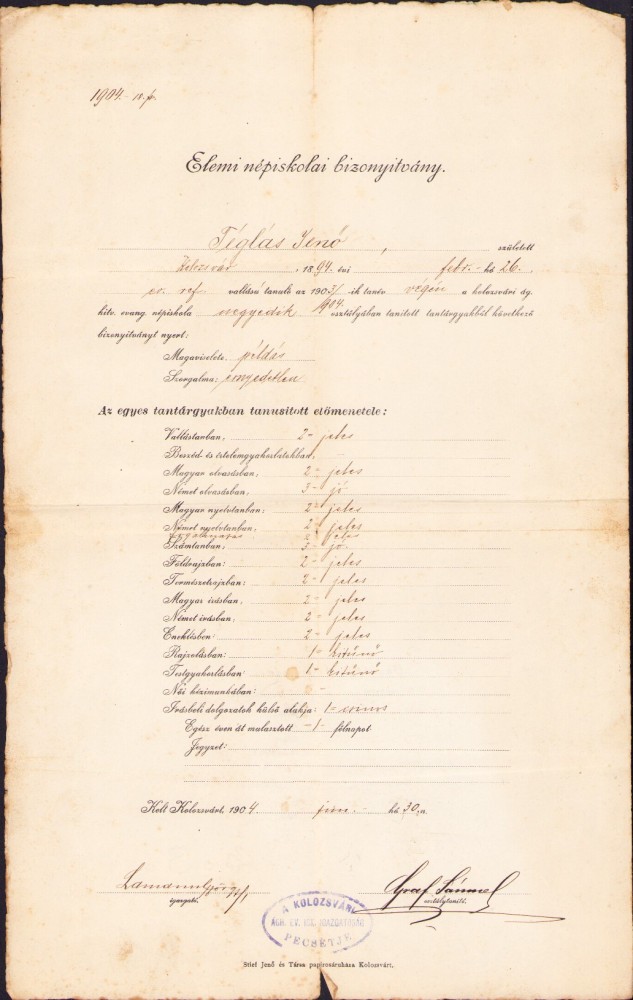 1904.
Elemi népiskolai bizonyitvány.
Téglás Jenő, született
Kolozsvár, 1894. évi febr.- hó 26.
ev. ref vallású tanuló az 1903/1904.-ik tanév végén a kolozsvári ág.
hitv. evang. népiskola negyedik osztályában tanított tantárgyakból következő
bizonyitványt nyert:
Magaviselete: példás
Szorgalma: ernyedetlen
Az egyes tantárgyakban tanusitott előmenetele:
Vallástanban, 2- jeles
Beszéd- és értelemgyakorlatokban, -
Magyar olvasásban, 2- jeles
Német olvasásban, 3- jó
Magyar nyelvtanban, 2- jeles
Német nyelvtanban, 2- jeles
2 jeles
Számtanban, 3- jó
Földrajzban: 2- jeles
Természetrajzban: 2- jeles
Magyar irásban, 2- jeles
Német irásban, 2- jeles
Éneklésben: 2- jeles
Rajzolásban: 1- kitünő
Testgyakorlásban 1- kitünő
Női kézimunkában: -
Irásbeli dolgozatok külső alakja: 1- csinos
Egész éven át mulasztott -1- félnapot.
Jegyzet:
Kelt Kolozsvárt, 1904 juni.- hó 30.-n.
igazgató.
Graef Sámuel
osztálytanító.
A KOLOZSVÁRI
ÁGH. EV. ISK. IGAZGATÓSÁG
PECSÉTJE
Stief Jenő és Társa papirosáruháza Kolozsvárt.